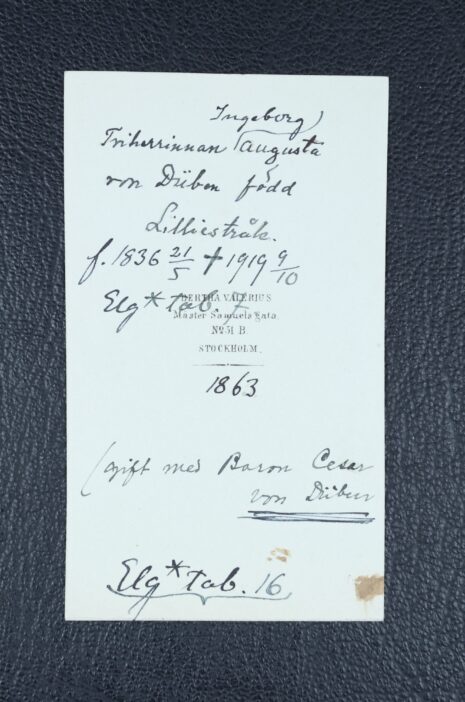 Ingeborg
Friherrinnan Augusta
von Düben född
Lilliestråk.
f. 1836 21/5 † 1919 9/10
Elg * Tab. 7
BERTHA VALERIUS
Mäster Samuels Gata.
No. 51 B.
STOCKHOLM.
1863
(gift med Baron Cesar
von Düben
Elg * Tab. 16